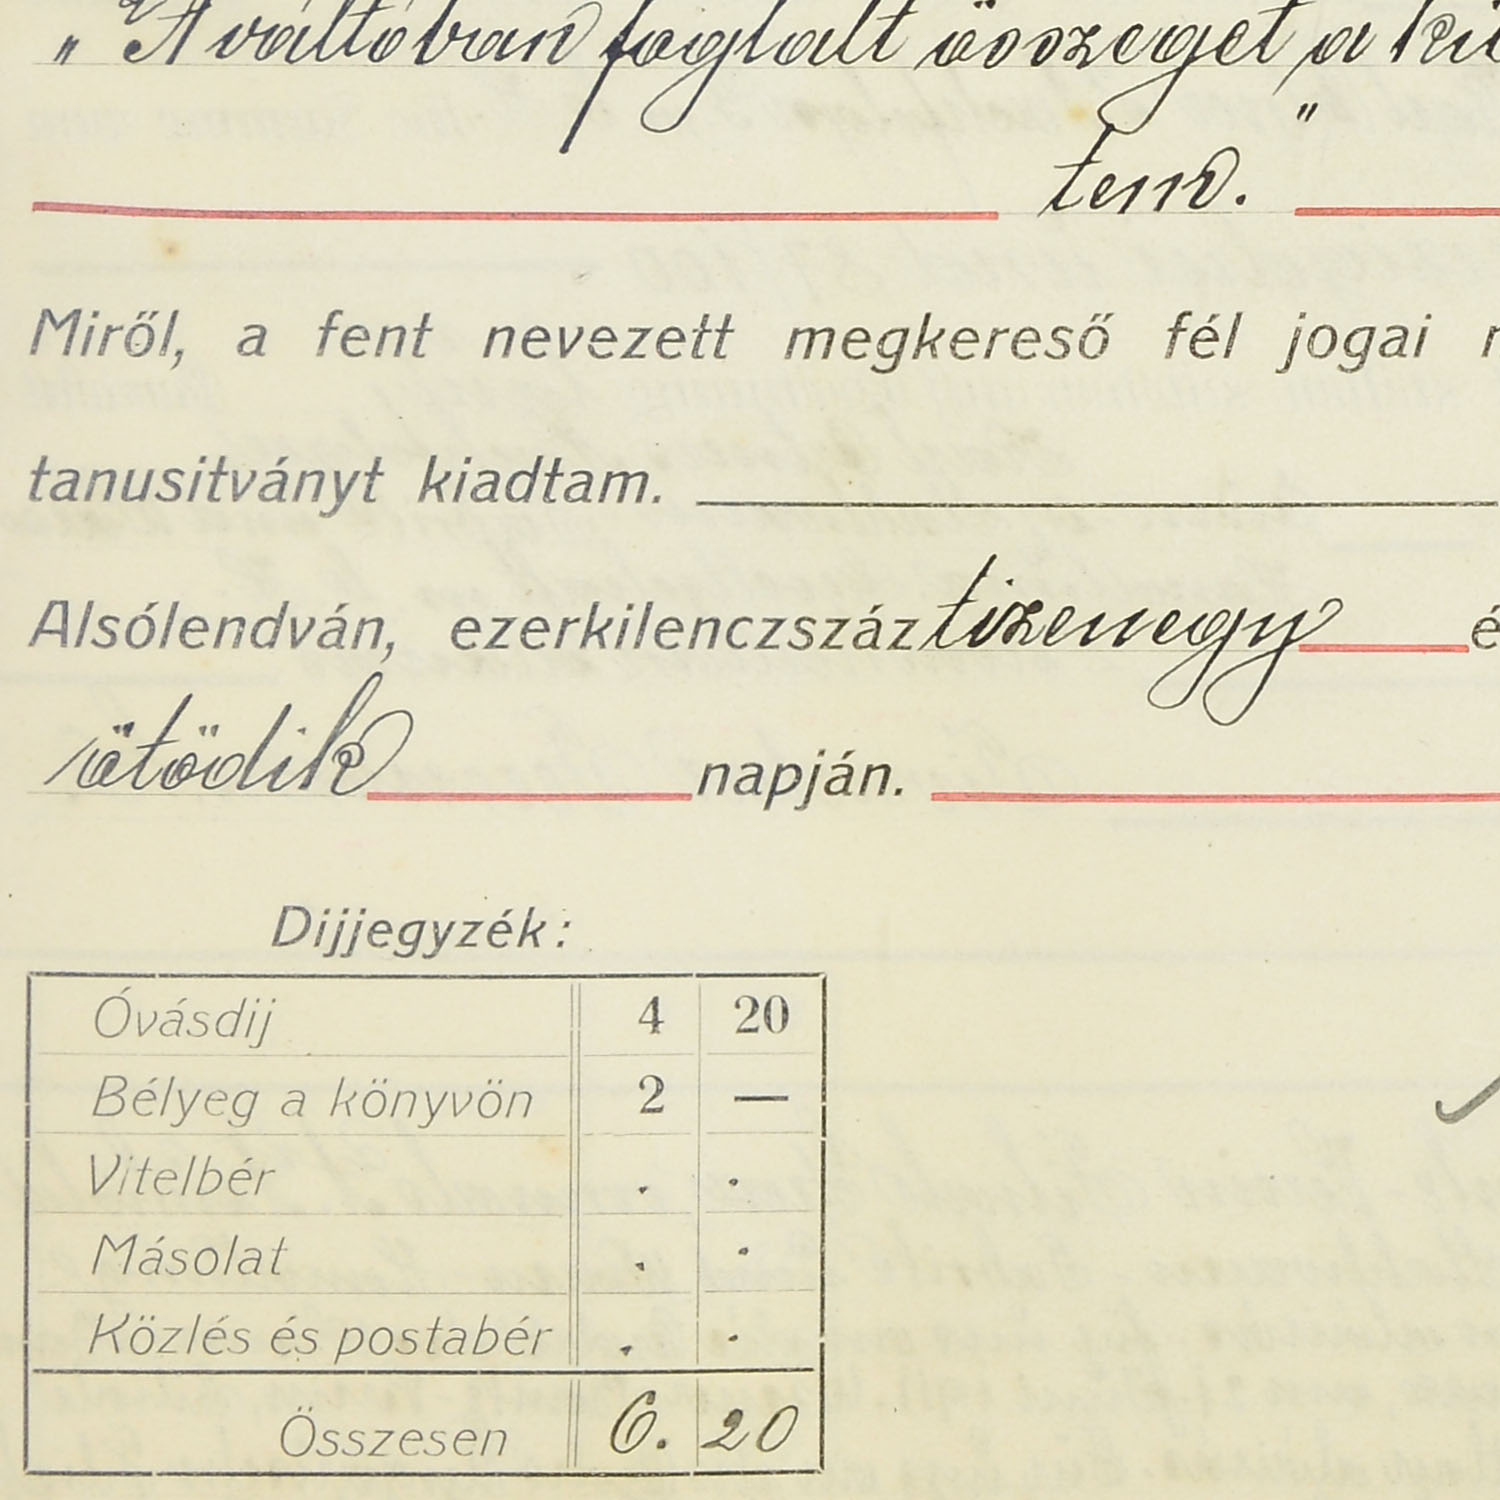 „A váltóban foglalt összeget a
"
tem.
Miről, a fent nevezett megkereső fél jogai
tanusitványt kiadtam.
Alsólendván, ezerkilenczszáz tizenegy é
ötödik napján.
Dijjegyzék:
Óvásdij 4 20
Bélyeg a könyvön 2 —
Vitelbér . .
Másolat . .
Közlés és postabér . .
Összesen 6. 20